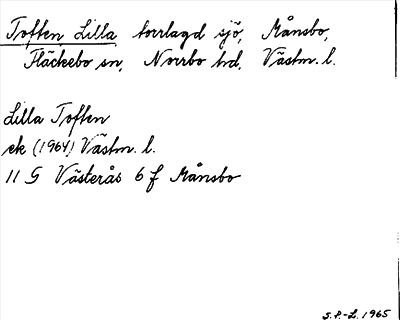 Toften, Lilla torrlagd sjö, Månsbo,
Fläckebo sn, Norrbo hd, Västm. l.
Lilla Toften
ek (1964) Västm. l.
11 G Västerås 6 f Månsbo
S.P.-L. 1965